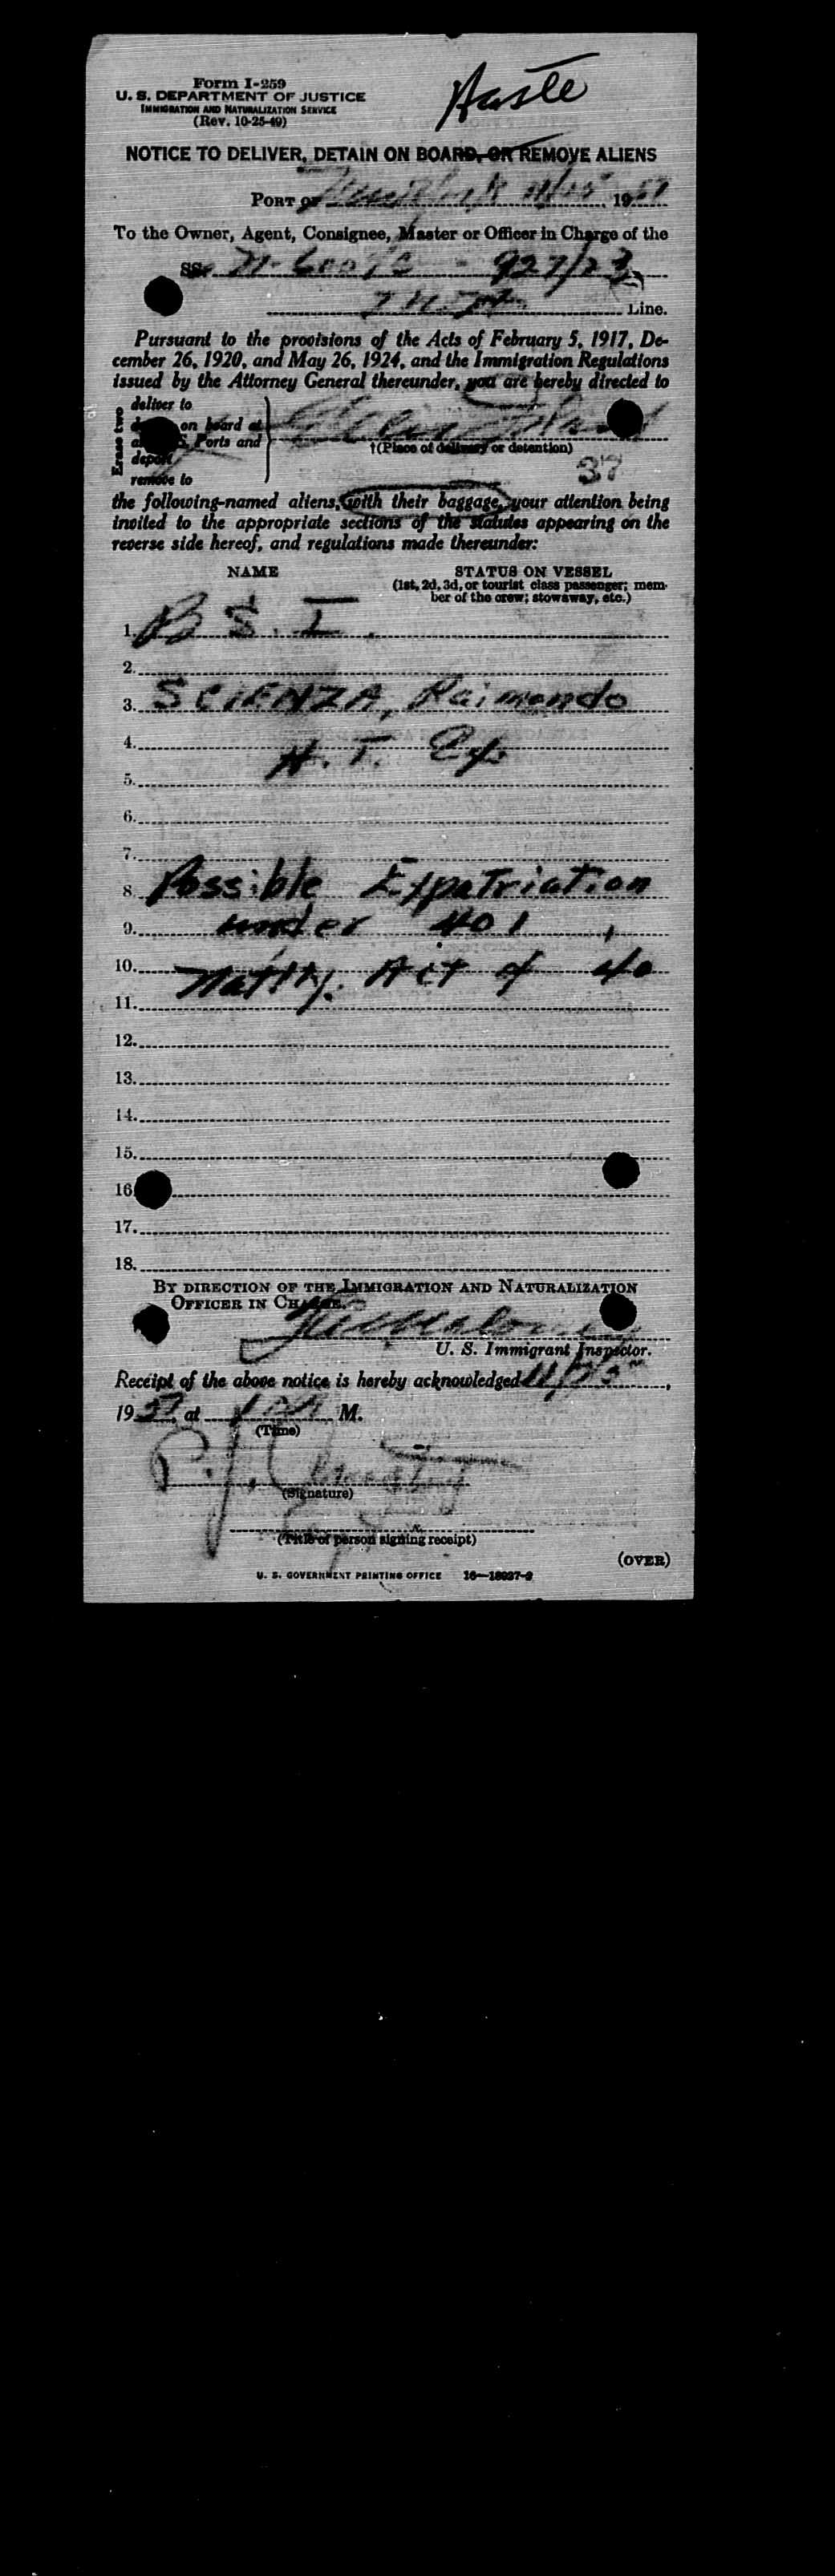 Form I-259
U. S. DEPARTMENT OF JUSTICE
IMMIGRATION AND NATURALIZATION SERVICE
(Rev. 10-25-49)
NOTICE TO DELIVER, DETAIN ON BOARD, OR REMOVE ALIENS
PORT OF 19 51
To the Owner, Agent, Consignee, Master or Officer in Charge of the
SS. 927/23
Line.
Pursuant to the provisions of the Acts of February 5, 1917, De-
cember 26, 1920, and May 26, 1924, and the Immigration Regulations
issued by the Attorney General thereunder, you are hereby directed to
Erase two
deliver to
on board at
Ports and
deport
remove to
†(Place of delivery or detention)
37
the following-named aliens, with their baggage, your attention being
invited to the appropriate sections of the statutes appearing on the
reverse side hereof, and regulations made thereunder:
NAME STATUS ON VESSEL
(1st, 2d, 3d, or tourist class passenger; mem-
ber of the crew; stowaway, etc.)
1. B S. I.
2.
3. SCIENZA, Raimondo
4. H. T.
5.
6.
7.
8. Possible Expatriation
9. under 401,
10. Natlty. Act of 40
11.
12.
13.
14.
15.
16.
17.
18.
BY DIRECTION OF THE IMMIGRATION AND NATURALIZATION
OFFICER IN CHARGE.
U. S. Immigrant Inspector.
Receipt of the above notice is hereby acknowledged
19 at M.
(Time)
(Signature)
(Title of person signing receipt)
(OVER)
U. S. GOVERNMENT PRINTING OFFICE 16—18027-2